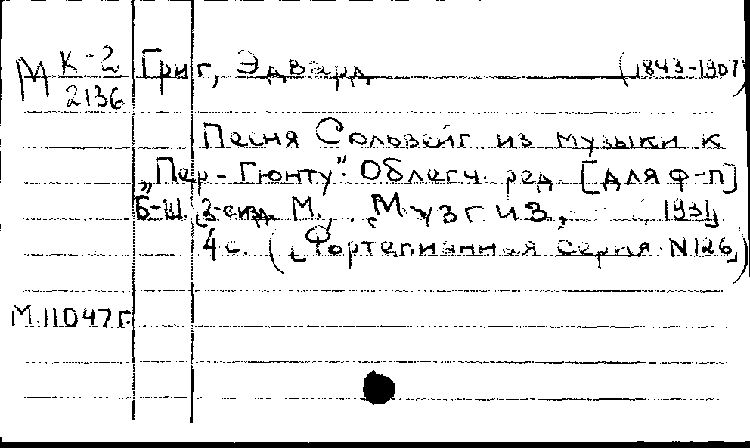 М К-2 Григ, Эдвард (1843-1907)
2136
Песня Сольвейг из музыки к
„Пер-Гюнту". Облегч. ред. [для ф-п]
Б-Ш. 3-е изд. М., Музгиз, 1931
4 с. (Фортепианная серия N126)
М.11047г.